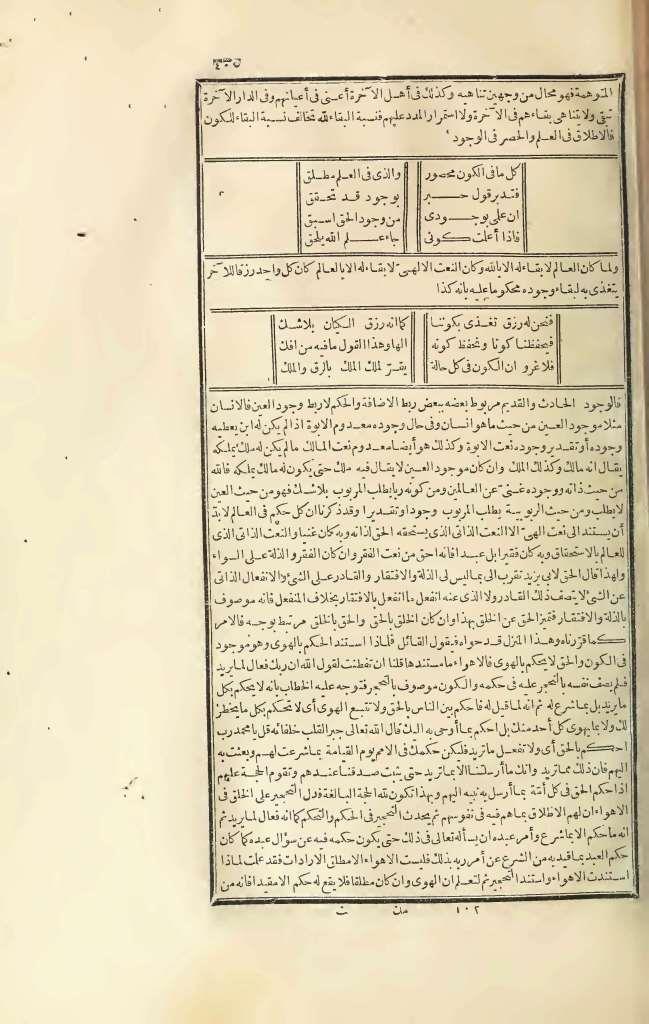 المتوهمة فهو محال من وجهين تناهيه وكذلك فى أهل الآخرة أعنى فى أعيانهم وفى الدار الآخرة
تبقى ولا يتناهى بقاءهم فى الآخرة ولا استمرار المدد عليهم فنسبة البقاء لله تخالف نسبة البقاء للكون
فالاطلاق فى العلم والحصر فى الوجود
كل ما فى الكون محصور والذى فى العلم مطلق
فتدبر قول حبر بوجود قد تحقق
ان علمى بوجودى من وجود الحق اسبق
فاذا أعلمت كونى جاء علم الله يلحق
ولما كان العالم لا بقاء له الا بالله وكان النعت الالهىّ لا بقاء له الا بالعالم كان كل واحد رزقا للآخر
يتغذى به لبقاء وجوده محكوما عليه بانه كذا
فنحن له رزق تغذى بكوننا كما انه رزق الكيان بلا شك
فيحفظنا كونا ونحفظ كونه الها وهذا القول ما فيه من افك
فلا غرو ان الكون فى كل حالة يقرّ لملك الملك بالرق والملك
فالوجود الحادث والقديم مربوط بعضه ببعض ربط الاضافة والحكم لا ربط وجود العين فالانسان
مثلا موجود العين من حيث ما هو انسان وفى حال وجوده معدوم الابوة اذا لم يكن له ابن يعطيه
وجوده أو تقدير وجوده نعت الابوة وكذلك هو أيضا معدوم نعت المالك ما لم يكن له ملك يملكه
يقال انه مالك وكذلك الملك وان كان موجود العين لا يقال فيه ملك حتى يكون له مالك يملكه فالله
من حيث ذاته ووجوده غنىّ عن العالمين ومن كونه ربا يطلب المربوب بلا شك فهو من حيث العين
لا يطلب ومن حيث الربوبية يطلب المربوب وجودا وتقديرا وقد ذكرنا ان كل حكم فى العالم لا بدّ
أن يستند الى نعت الهىّ الا النعت الذاتى الذى يستحقه الحق لذاته وبه كان غنيا والنعت الذاتى الذى
للعالم بالاستحقاق وبه كان فقيرا بل عبدا فانه احق من نعت الفقر وان كان الفقر والذلة على السواء
ولهذا قال الحق لابى يزيد تقرب الى بما ليس لى الذلة والافتقار والقادر على الشئ لا الانفعال الذاتى
عن الشئ لا يتصف ذلك القادر ولا الذى عنه انفعل ما انفعل بالافتقار بخلاف المنفعل فانه موصوف
بالذلة والافتقار فتميز الحق عن الخلق بهذا وان كان الخلق بالحق والحق بالخلق مرتبط بوجه فالامر
كما قرّرناه وهذا المنزل قد حواه فيقول القائل فلماذا استند الحكم بالهوى وهو موجود
فى الكون والحق لا يحكم بالهوى فالاهواء ما مستندها قلنا ان تفطنت لقول الله ان ربك فعال لما يريد
فلم يصف نفسه بالتحجير عليه فى حكمه والكون موصوف بالتحجير فتوجه عليه الخطاب بانه لا يحكم بكل
ما يريد بل بما شرع له ثم انه لما قيل له فاحكم بين الناس بالحق ولا تتبع الهوى أى لا تحكم بكل ما يخطر
لك ولا بما يهوى كل أحد منك بل احكم بما أوحى به اليك قال الله تعالى جبر القلب خلفائه قل يا محمد رب
احكم بالحق أى ولا تفعل ما تريد فليكن حكمك فى الامم يوم القيامة بما شرعت لهم وبعثت به
اليهم فان ذلك مما تريد وانك ما أرسلتنا الا بما تريد حتى يثبت صدقنا عندهم وتقوم الحجة عليهم
اذا حكم الحق فى كل أمّة بما أرسل به نبيه اليهم وبهذا تكون لله الحجة البالغة فدل التحجير على الخلق فى
الاهواء ان لهم الاطلاق بما هم فيه فى نفوسهم ثم يحدث التحجير فى الحكم والتحكم كما انه فعال لما يريد ثم
انه ما حكم الا بما شرع وأمر عبده ان يسأله تعالى فى ذلك حتى يكون حكمه فيه عن سؤال عبده كما كان
حكم العبد بما قيد به من الشرع عن أمر ربه بذلك فليست الاهواء الا مطلق الارادات فقد علمت لماذا
استندت الاهواء واستند التحجير ثم لتعلم ان الهوى وان كان مطلقا فلا يقع له حكم الا مقيدا فانه من
١٠٢ مك ث